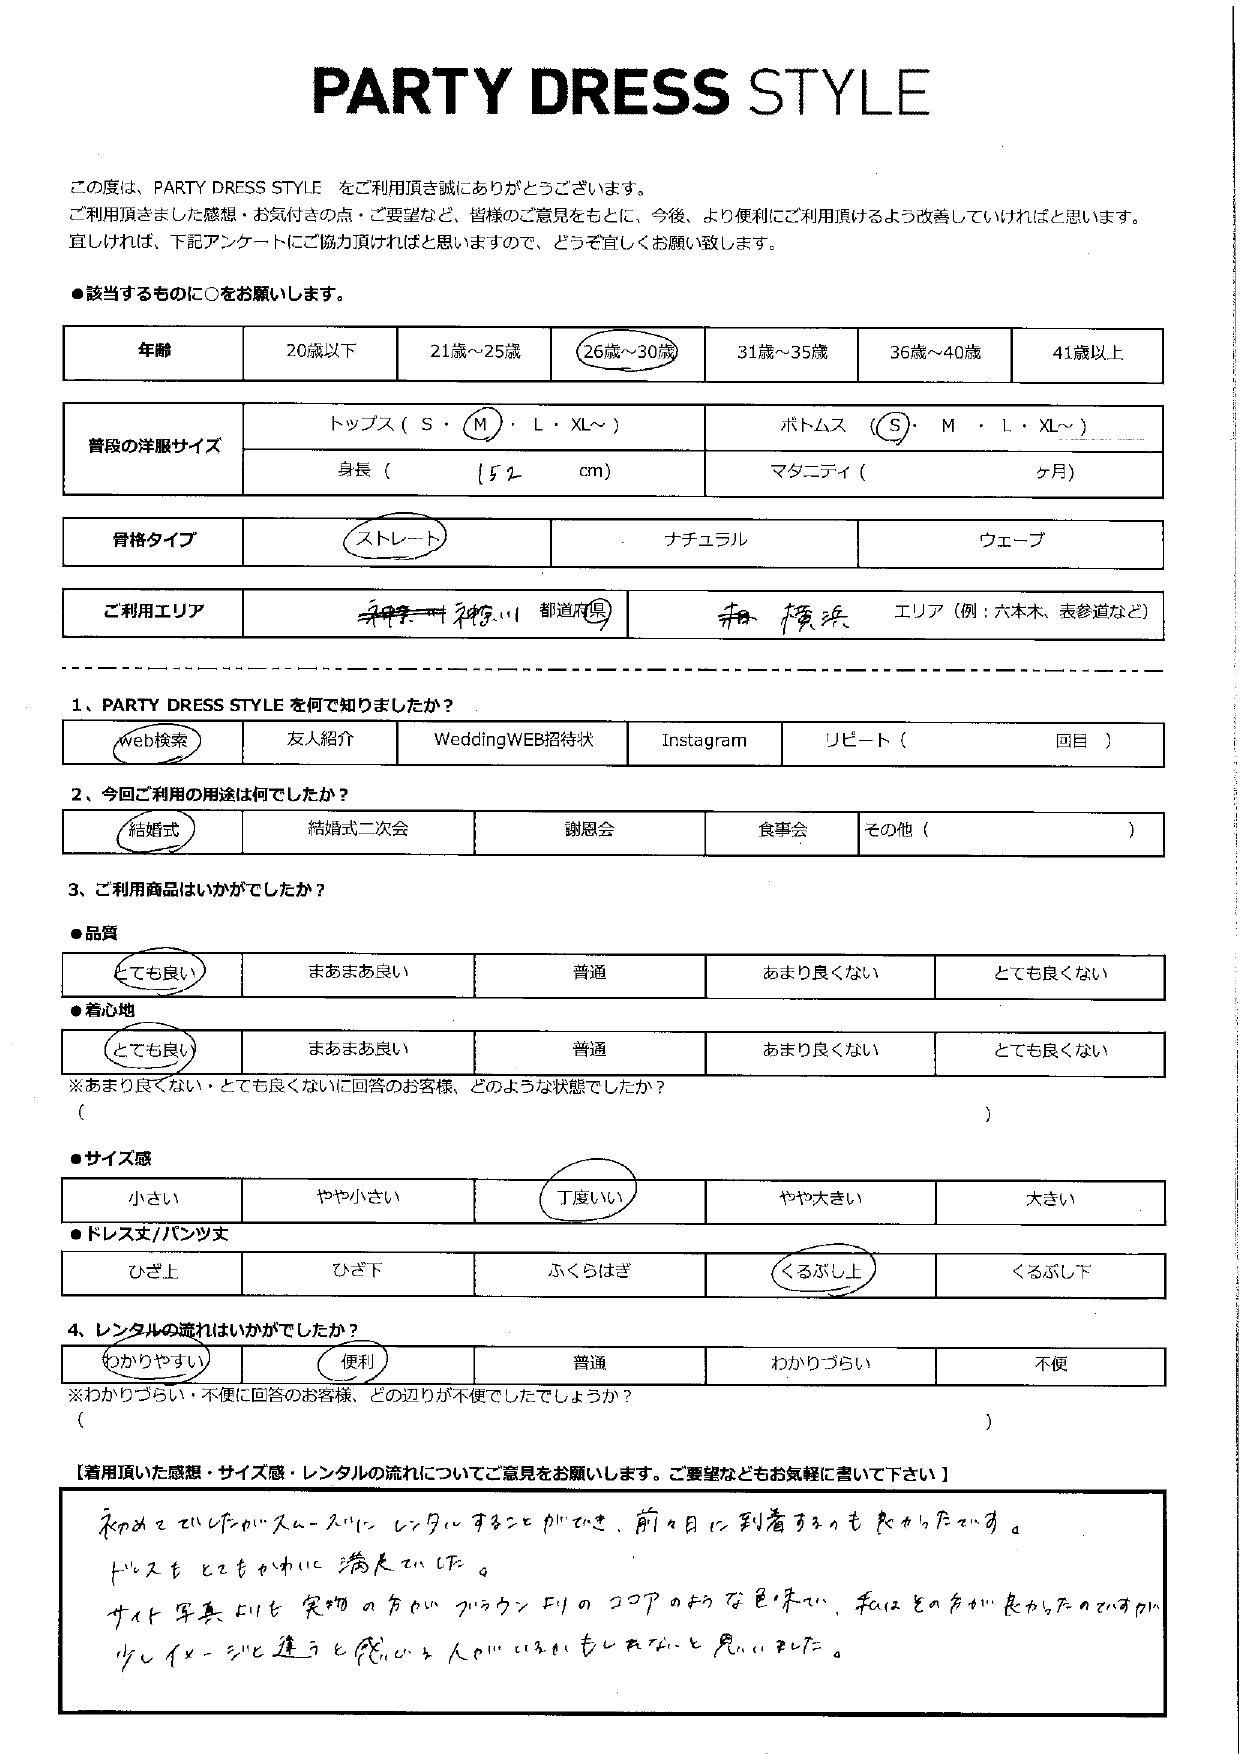 PARTY DRESS STYLE
この度は、PARTY DRESS STYLE をご利用頂き誠にありがとうございます。
ご利用頂きました感想・お気付きの点・ご要望など、皆様のご意見をもとに、今後、より便利にご利用頂けるよう改善していければと思います。
宜しければ、下記アンケートにご協力頂ければと思いますので、どうぞ宜しくお願い致します。
●該当するものに○をお願いします。
年齢 20歳以下 21歳～25歳 26歳～30歳 31歳～35歳 36歳～40歳 41歳以上
普段の洋服サイズ トップス ( S ・ M ・ L ・ XL～ ) ボトムス ( S ・ M ・ L ・ XL～ )
身長 ( 152 cm) マタニティ ( ヶ月)
骨格タイプ ストレート ナチュラル ウェーブ
ご利用エリア 神奈川 都道府県 横浜 エリア (例：六本木、表参道など)
1、PARTY DRESS STYLE を何で知りましたか？
web検索 友人紹介 WeddingWEB招待状 Instagram リピート ( 回目 )
2、今回ご利用の用途は何でしたか？
結婚式 結婚式二次会 謝恩会 食事会 その他 ( )
3、ご利用商品はいかがでしたか？
●品質
とても良い まあまあ良い 普通 あまり良くない とても良くない
●着心地
とても良い まあまあ良い 普通 あまり良くない とても良くない
※あまり良くない・とても良くないに回答のお客様、どのような状態でしたか？
( )
●サイズ感
小さい やや小さい 丁度いい やや大きい 大きい
●ドレス丈/パンツ丈
ひざ上 ひざ下 ふくらはぎ くるぶし上 くるぶし下
4、レンタルの流れはいかがでしたか？
わかりやすい 便利 普通 わかりづらい 不便
※わかりづらい・不便に回答のお客様、どの辺りが不便でしたでしょうか？
( )
【着用頂いた感想・サイズ感・レンタルの流れについてご意見をお願いします。ご要望などもお気軽に書いて下さい】
初めてでしたがスムーズにレンタルすることができ、前々日に到着するのも良かったです。
ドレスもとてもかわいく満足でした。
サイト写真よりも実物の方がブラウンよりのココアのような色味で、私はその方が良かったのですが
少しイメージと違うと感じる人がいるかもしれないと思いました。